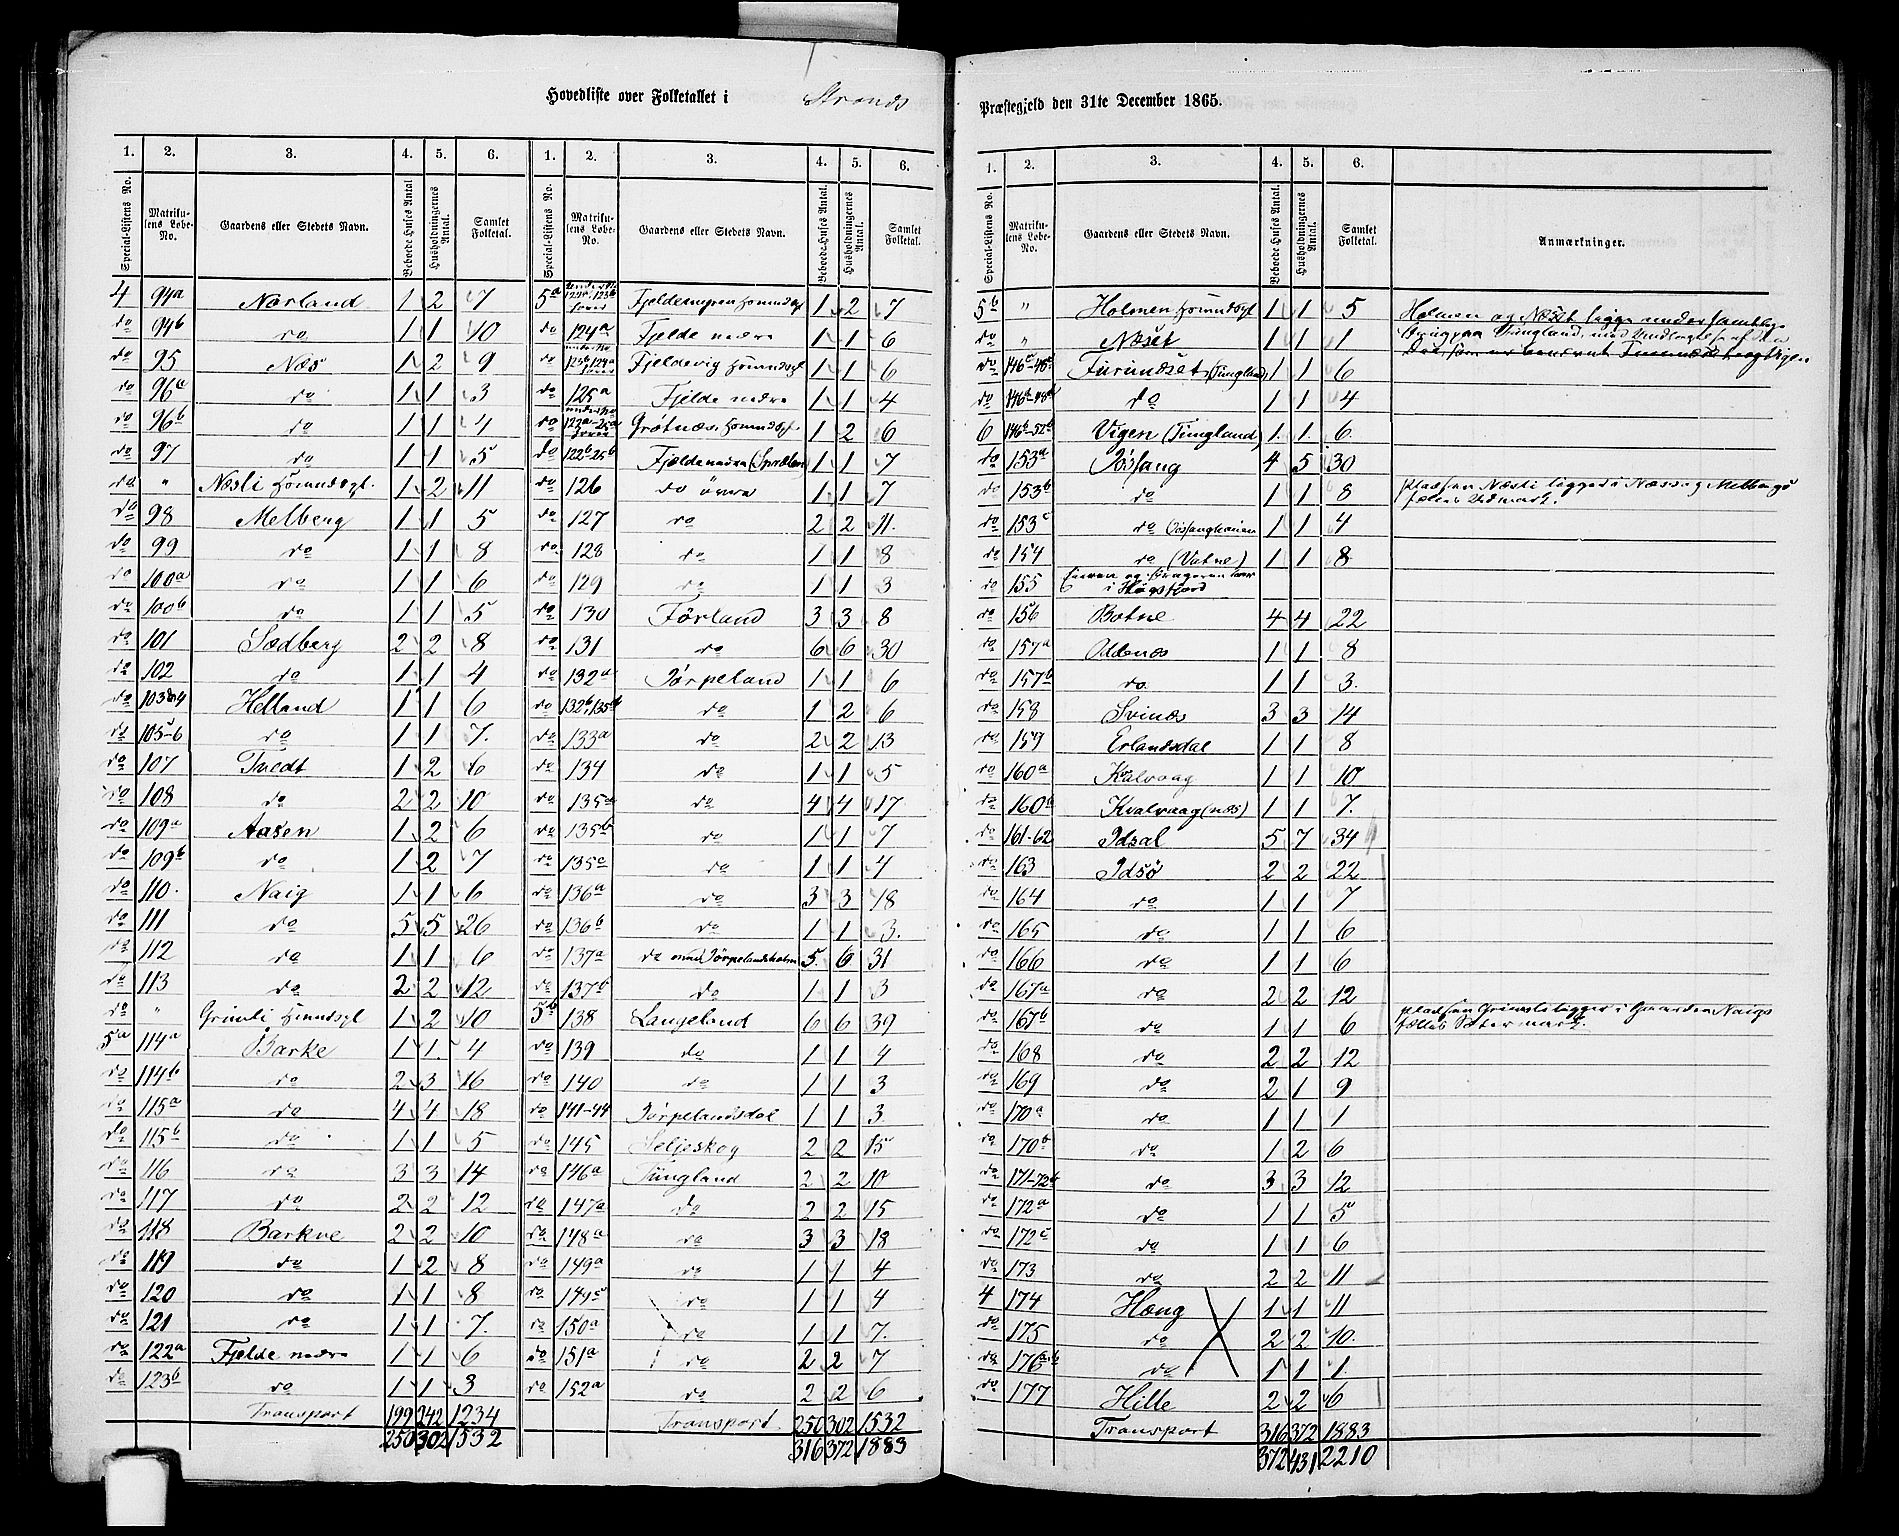 Hovedliste over Folketallet i Strands Præstegjeld den 31te December 1865.
1. 2. 3. 4. 5. 6. 1. 2. 3. 4. 5. 6.
Special-Listens No. Matrikulens Løbe-No. Gaardens eller Stedets Navn. Beboede Huses Antal Husholdningernes Antal. Samlet Folketal. Special-Listens No. Matrikulens Løbe-No. Gaardens eller Stedets Navn. Beboede Huses Antal. Husholdningernes Antal. Samlet Folketal.
4 94a Nørland 1 2 7
do 94b do 1 1 10
do 95 Næs 1 2 9
do 96a do 1 1 3
do 96b do 1 1 4
do 97 do 1 1 5
do " Næsli Huusmdspl. 1 2 11
do 98 Melberg 1 1 5
do 99 do 1 1 8
do 100a do 1 1 6
do 100b do 1 1 5
do 101 Sædberg 2 2 8
do 102 do 1 1 4
do 103 Helland 1 1 6
do 105-6 do 1 1 7.
do 107 Tvedt 1 2 6
do 108 do 2 2 10
do 109a Aasen 1 2 6
do 109b do 1 2 7
do 110. Naig 1 1 6
do 111 do 5 5 26
do 112 do 1 1 6
do 113 do 2 2 12
do " Grimli 1 2 10
5a 114a Barke 1 1. 4
do 114b do 2 3 16
do 115a do 4 4 18
do 115b do 1 1 5
do 116 do 3 3 14
do 117 do 2 2 12
do 118 Barkve 2 2 10
do 119 do 1 2 8
do 120 do 1 1 8
do 121 do 1 1 7.
do 122a Fjelde nedre 1 1 6
do 123b do 1 1 3
Transport 199 242 1234
250 302 1532
5a Fjeldemyren 1 2 7
do 124a Fjelde nedre 1 1 6
do Fjeldevig 1 1 6
do 125a Fjelde nedre 1 1 4
do Grøtnæs 1 2 6
do 122b-25b Fjelde nedre 1 1 7
do 126 do øvre 1 1 7
do 127 do 2 2 11.
do 128 do 1 1 8
do 129 do 1 1 3
do 130 Førland 3 3 8
do 131 do 6 6 30
do 132a Jørpeland 1 1 6
do 132b, 135 do 1 2 6
do 133a do 2 2 13
do 134 do 1 1 5
do 135a do 4 4 17
do 135b do 1 1 7
do 135c do 1 1 4
do 136a do 3 3 18
do 136b do 1 1 3.
do 137a do med Jørpelandsholm 5. 6 31
do 137b do 1 1 3
5b 138 Langeland 6 6 39
do 139 do 1 1 4
do 140 do 1 1 3
do 141-44 Jørpelandsdal 1 1 3.
do 145 Seljeskog 2 2 15
do 146a Tungland 2 2 10
do 147a do 2 2 15
do 148a do 3 3 18
do 149a do 1 1 4
do 149c do 1 1 4
do 150a do 1 1 7.
do 151a do 2 2 7
do 152a do 2 2 6
Transport. 250 302 1532
316 372 1883
1. 2. 3. 4. 5. 6.
Special-Listens No. Matrikulens Løbe-No. Gaardens eller Stedets Navn. Beboede Huses Antal. Husholdningernes Antal. Samlet Folketal. Anmærkninger.
5b " Holmen 1 1 5 Holmen og Næset ligge under samtlige
do " Næset 1 1 1 Tungland, med Undtagelse af
do Furundset (Tungland) 1 1 6
do do 1 1 4
6 Vigen (Tungland) 1. 1. 6.
do 153a Jøssang 4 5 30
do 153b do 1 1 8 pladsen Næsli ligger i Næs og Melbergs
fælles Udmark.
do 153c do 1 1 4
do 154 do (Vatne) 1 1 8
do 155 i Høgsfjord
do 156 Botne 4 4 22
do 157a Addenæs 1 1 8
do 157b do 1 1 3.
do 158 Svinæs 3 3 14
do 159 Erlandsdal 1 1 8
do 160a Kvalvaag 1 1 10
do 160b Kvalvaag (næs) 1 1 7.
do 161-62 Idsal 5 7 34
do 163 Idsø 2 2 22
do 164 do 1 1 7
do 165 do 1 1 6
do 166 do 1 1 6
do 167a do 2 2 12
do 167b do 1 1 6 pladsen Grimsli ligger i Gaarden Naigs
fælles
do 168 do 2 2 12
do 169 do 2 1 9
do 170a do 1 1 1
do 170b do 1 2 6
do 171-72b do 3 3 12
do 172a do 1 1 5
do 172c do 1 1 6
do 173 do 2 2 11
4 174 Houg 1 1 11
do 175 do 2 2 10.
do 176 do 1 1 1.
do 177 Hille 2 2 6
Transport 316 372 1883
372 431 2210